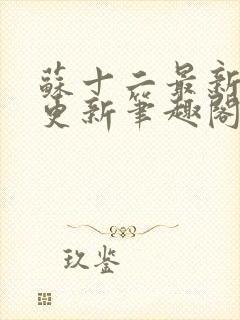 蘇十二最新
更新筆趣閣
玖鉴